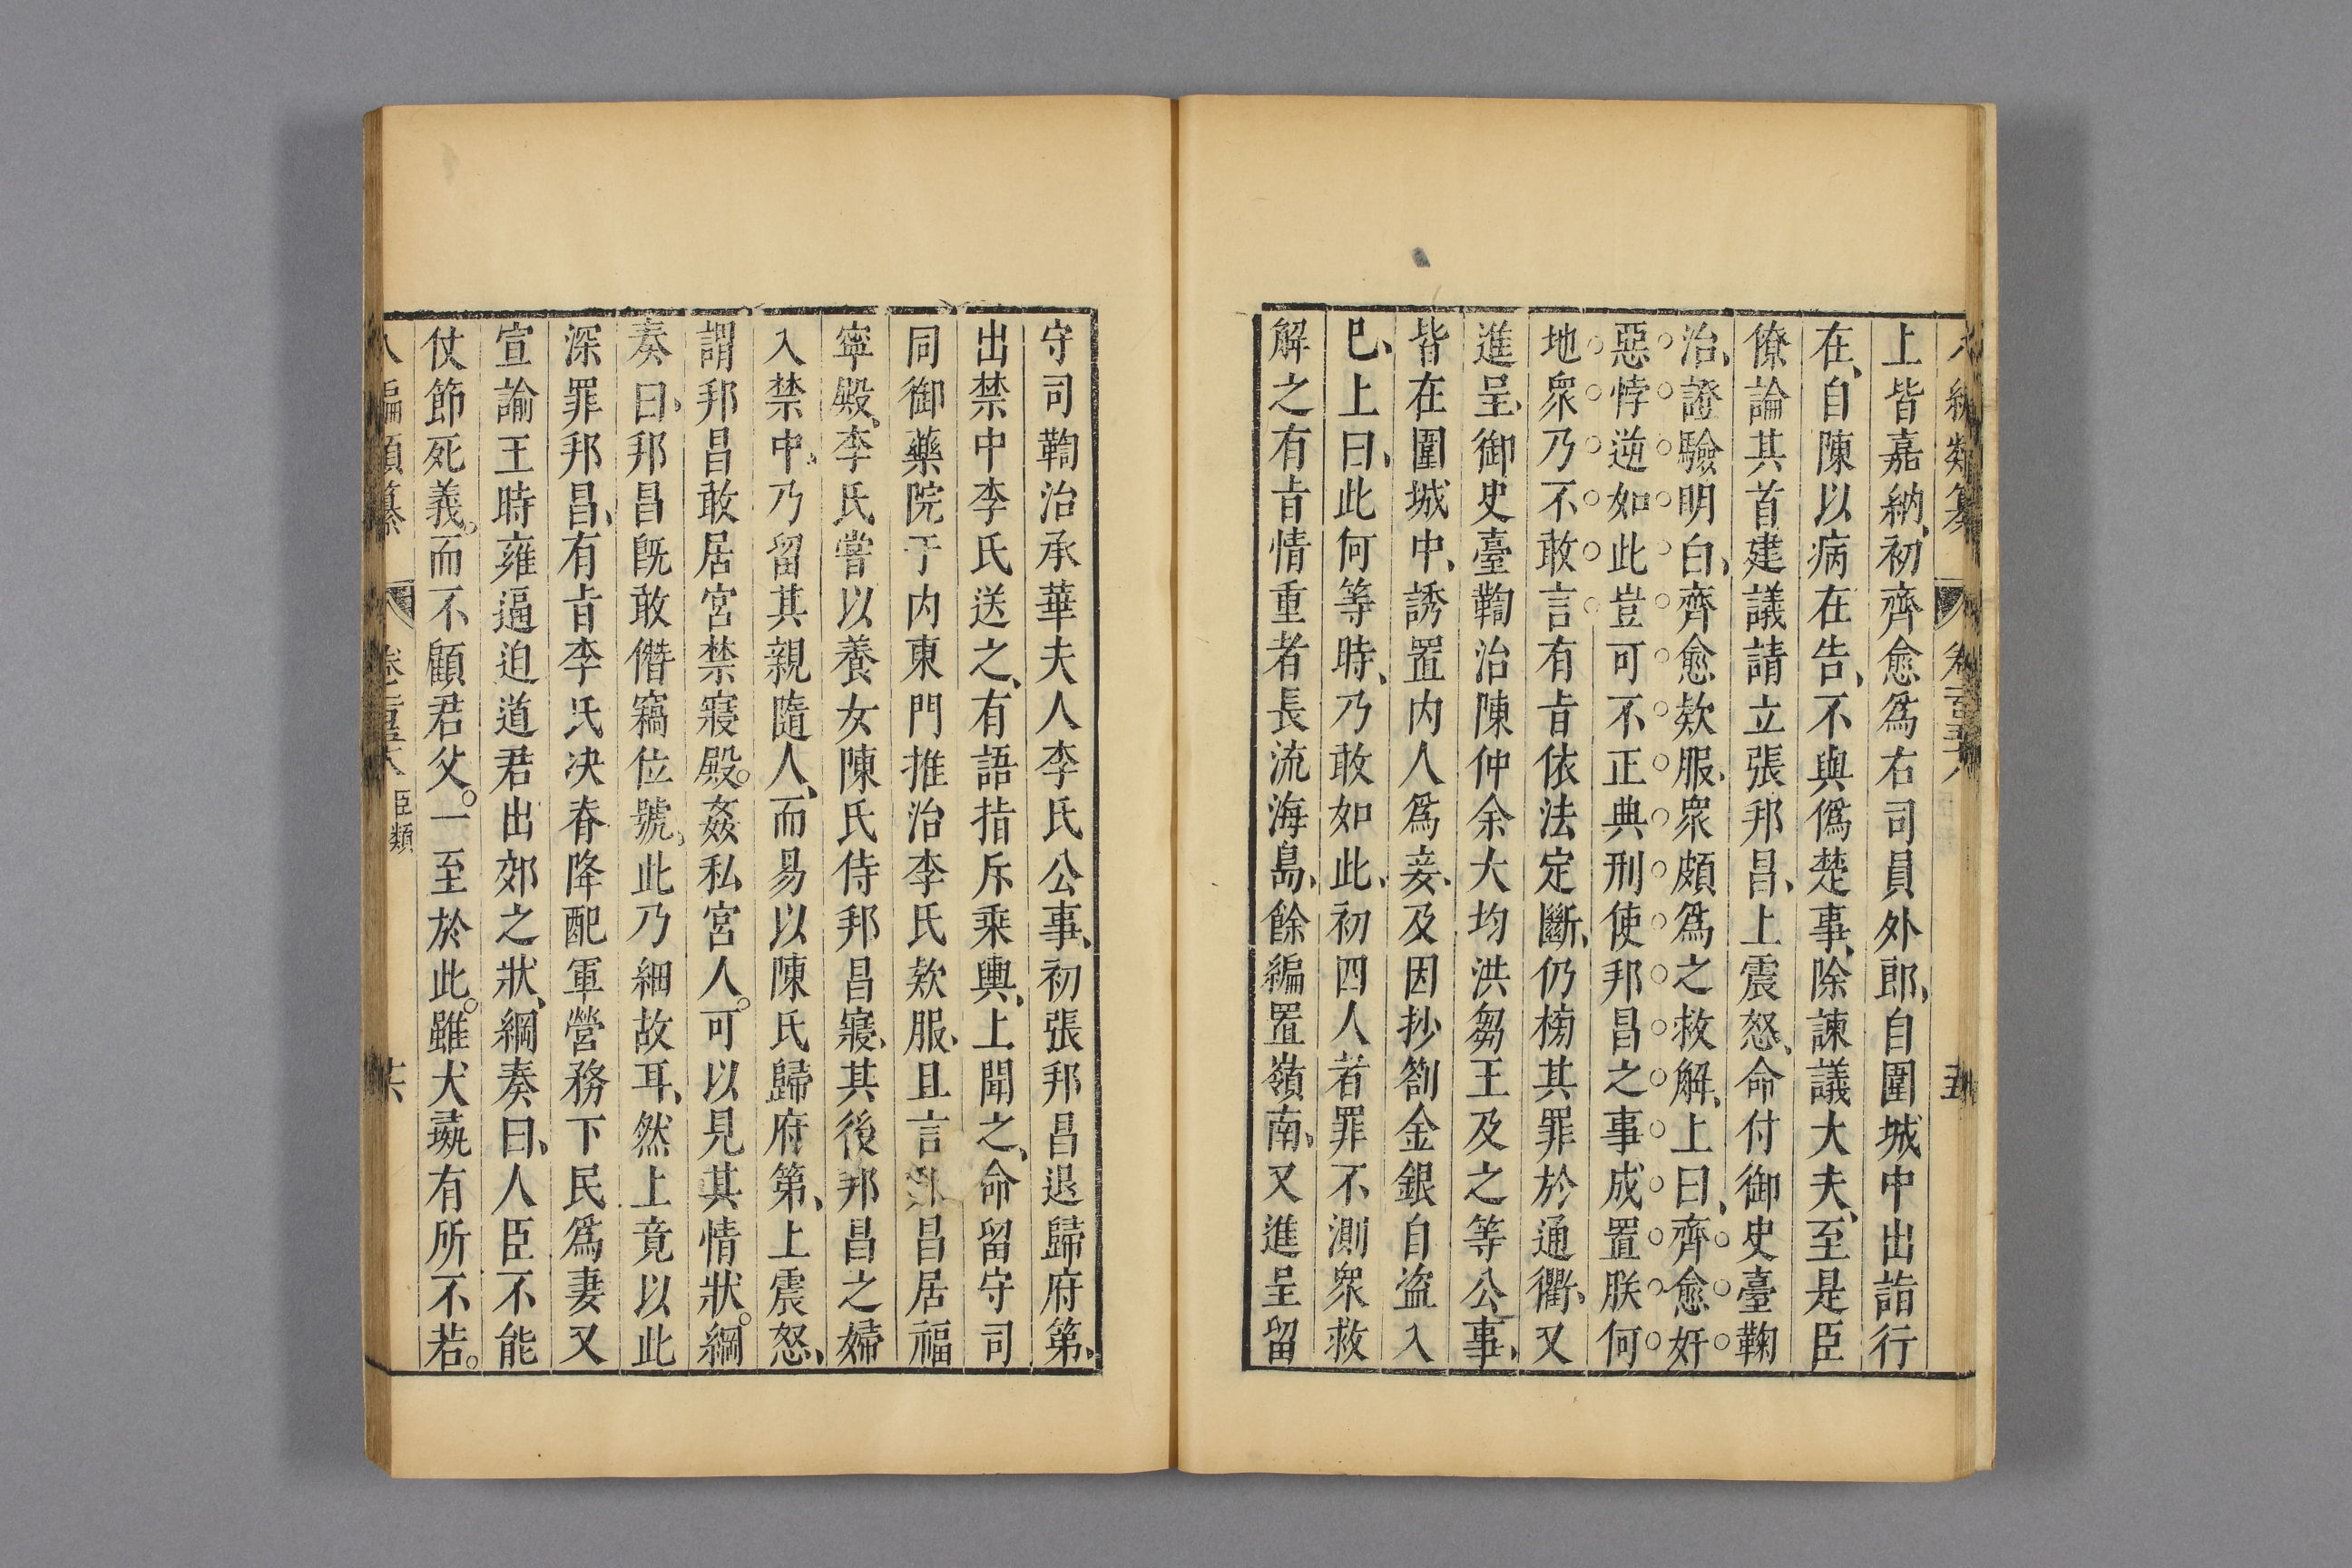 上皆嘉納、初齊愈爲右司員外郎、自圍城中出詣行
在、自陳以病在告、不與僞楚事、除諫議大夫、至是臣
僚論其首建議請立張邦昌、上震怒、命付御史臺鞠
治、證驗明白、齊愈欵服、衆頗爲之救解、上曰、齊愈奸
惡悖逆如此豈可不正典刑使邦昌之事成置朕何
地衆乃不敢言有旨依法定斷、仍榜其罪於通衢、又
進呈、御史臺鞫治陳仲余大均洪芻王及之等公事、
皆在圍城中、誘置内人爲妾、及因抄劄金銀自盜入
已、上曰、此何等時、乃敢如此、初四人者罪不測衆救
解之有旨情重者長流海島、餘編置嶺南、又進呈留
守司鞫治承華夫人李氏公事、初張邦昌退歸府第、
出禁中李氏送之、有語指斥乘輿、上聞之、命留守司
同御藥院于内東門推治李氏欵服、且言邦昌居福
寧殿、李氏嘗以養女陳氏侍邦昌寢、其後邦昌之婦
入禁中、乃留其親隨人、而易以陳氏歸府第、上震怒、
謂邦昌敢居宮禁寢殿。姦私宮人。可以見其情狀。綱
奏曰、邦昌既敢僭竊位號、此乃細故耳、然上竟以此
深罪邦昌、有旨李氏决脊降配軍營務下民爲妻又
宣諭王時雍逼迫道君出郊之狀、綱奏曰、人臣不能
仗節死義。而不顧君父。一至於此。雖犬彘有所不若。
臣類